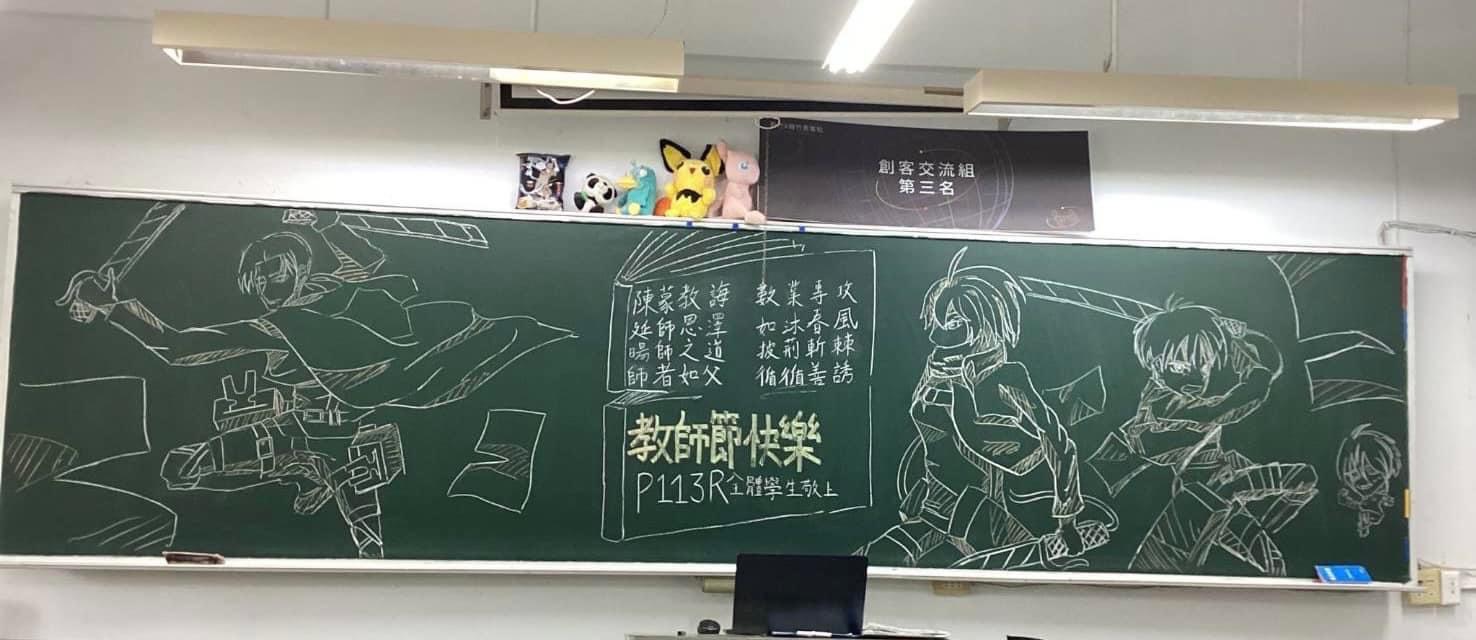 創客交流組
第三名
陳蒙教誨 數業專攻
延師恩澤 如沐春風
暘師之道 披荊斬棘
師者如父 循循善誘
教師節快樂
P113R全體學生敬上